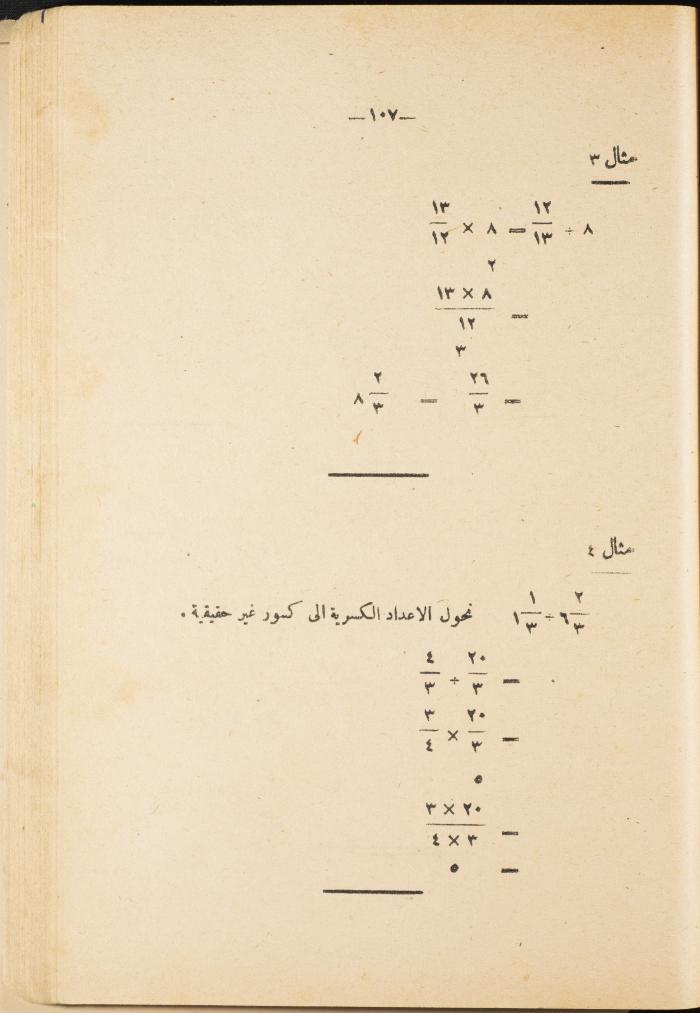 —١٠٧—
مثال ٣
٨ ÷ ١٢/١٣ = ٨ × ١٣/١٢
٢
= (٨ × ١٣)/١٢
٣
= ٢٦/٣ = ٨ ٢/٣
مثال ٤
٦ ٢/٣ ÷ ١ ١/٣ نحول الاعداد الكسرية الى كسور غير حقيقية .
= ٢٠/٣ ÷ ٤/٣
= ٢٠/٣ × ٣/٤
٥
= (٢٠ × ٣)/(٣ × ٤)
= ٥